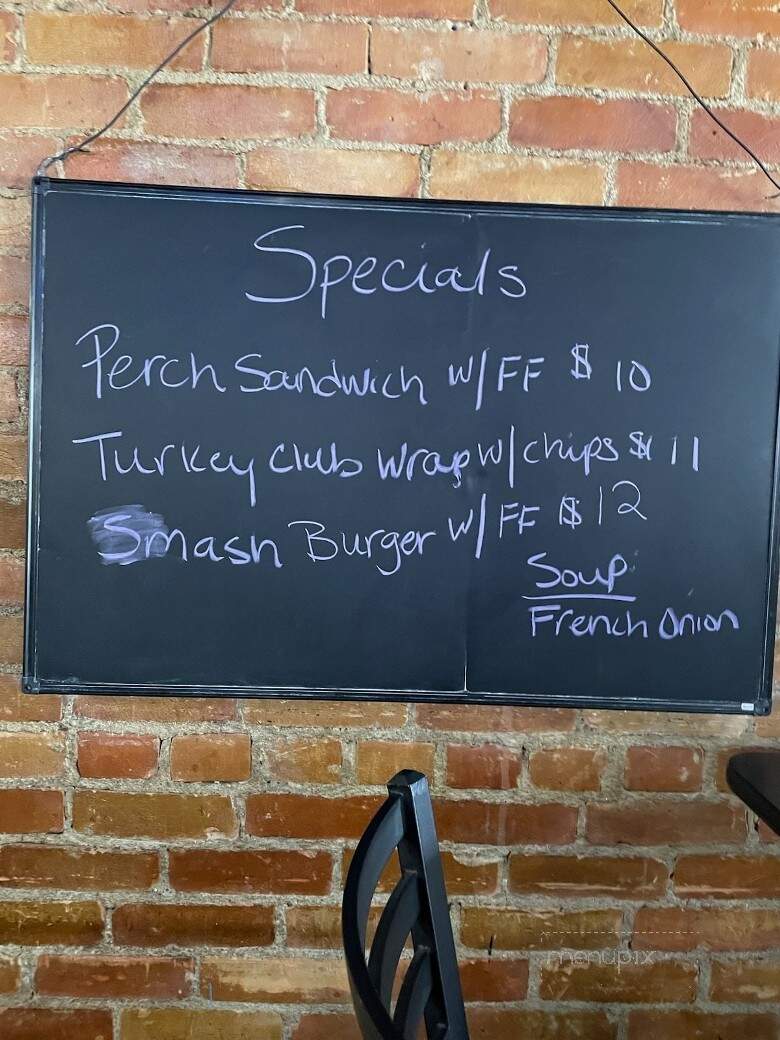 Specials
Perch Sandwich w/ FF $ 10
Turkey Club Wrap w/ chips $ 11
Smash Burger w/ FF $ 12
Soup
French Onion
menupix